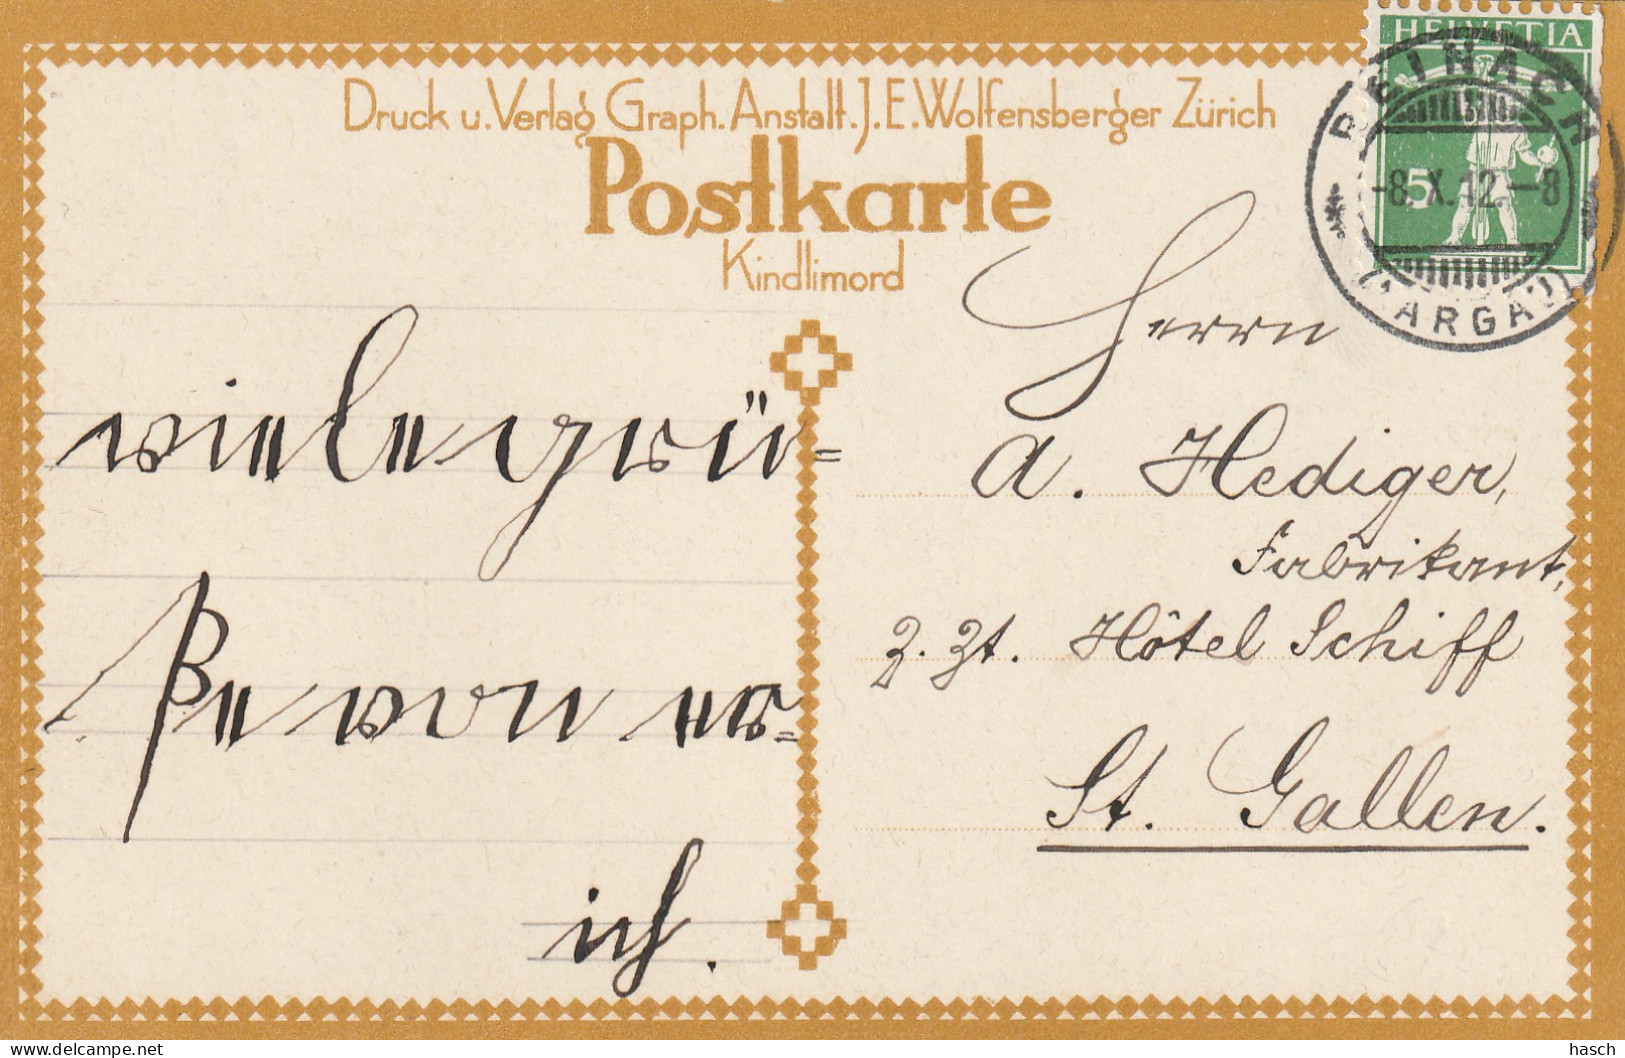 Druck u. Verlag Graph. Anstalt. J. E. Wolfensberger Zürich
Postkarte
Kindlimord
HELVETIA
5
REINACH
-8. X. 12. -8
(AARGAU)
viele grü=
ße von
ich.
Herrn
A. Hediger,
Fabrikant,
z. Zt. Hôtel Schiff
St. Gallen.
delcampe.net
hasch